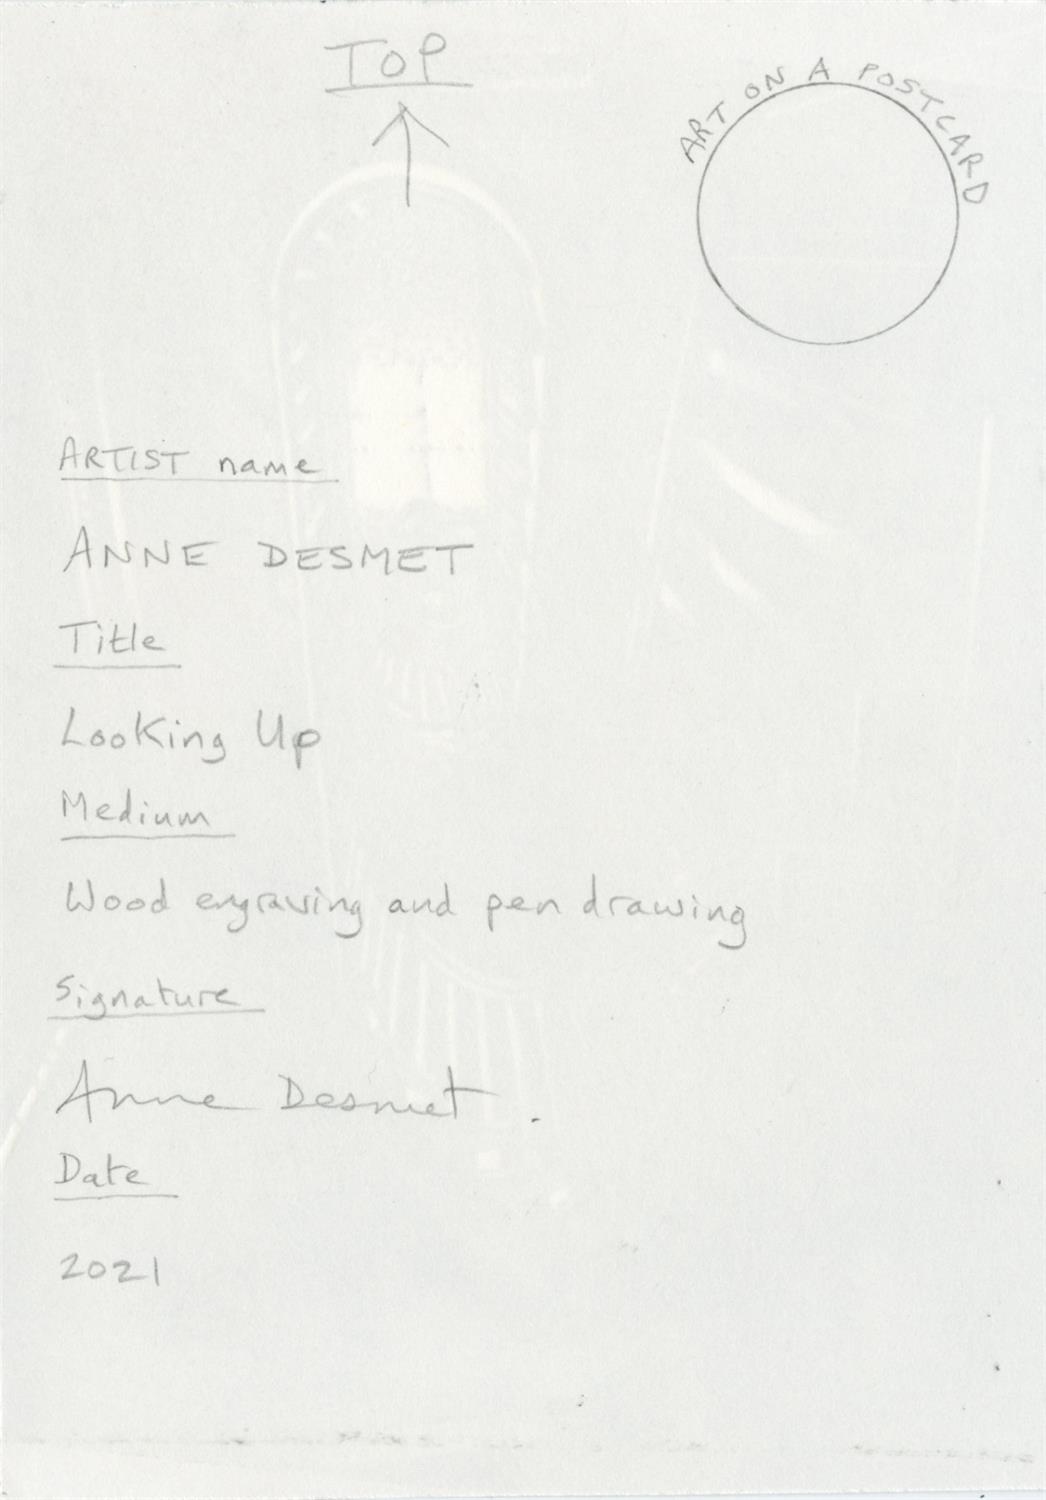 TOP
ART ON A POSTCARD
ARTIST name
ANNE DESMET
Title
Looking Up
Medium
Wood engraving and pen drawing
Signature
Anne Desmet.
Date
2021